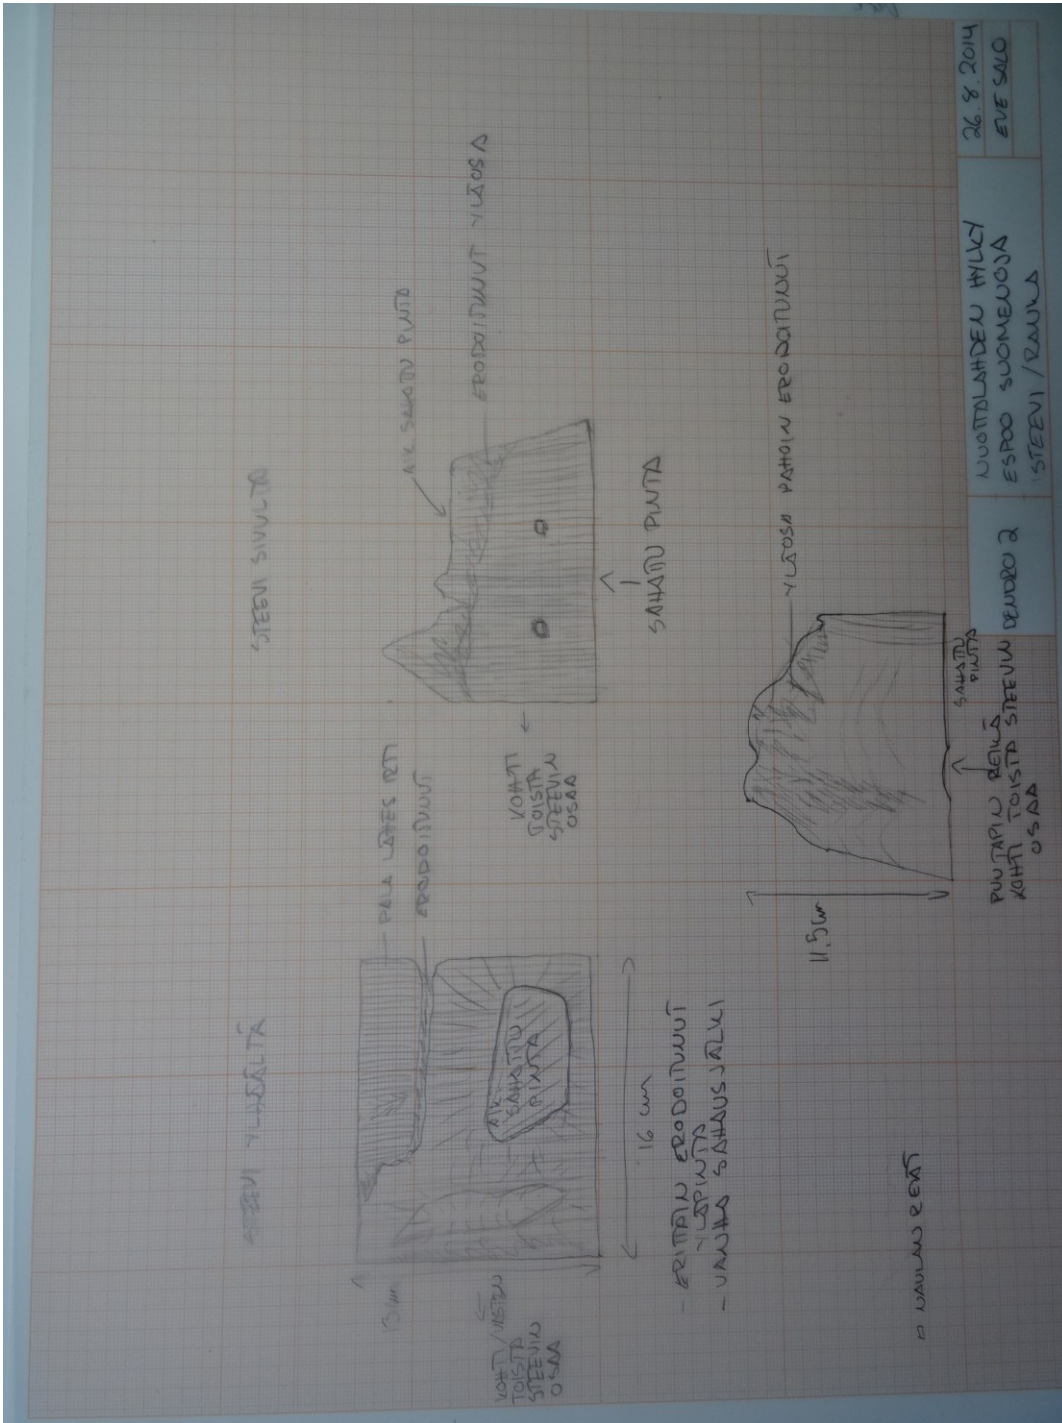 STEEVI YLHÄÄLTÄ
13 cm
KOHTI/VASTEN
TOISTA
STEEVIN
OSAA
PALA LÄHES IRTI
ERODOITUNUT
ALK.
SAHATTU
PINTA
16 cm
- ERITTÄIN ERODOITUNUT
YLÄPINTA
- VANHA SAHAUSJÄLKI
STEEVI SIVULTA
ALK SAHATTU PINTA
ERODOITUNUT YLÄOSA
KOHTI
TOISTA
STEEVIN
OSAA
SAHATTU PINTA
YLÄOSA PAHOIN ERODOITUNUT
11.5 cm
SAHATTU
PINTA
PUUTAPIN REIKÄ
KOHTI TOISTA STEEVIN
OSAA
□ NAULAN REIÄT
DENDRO 2
NUOTTALAHDEN HYLKY
ESPOO SUOMENOJA
STEEVI / RANKA
26.8.2014
EVE SALO